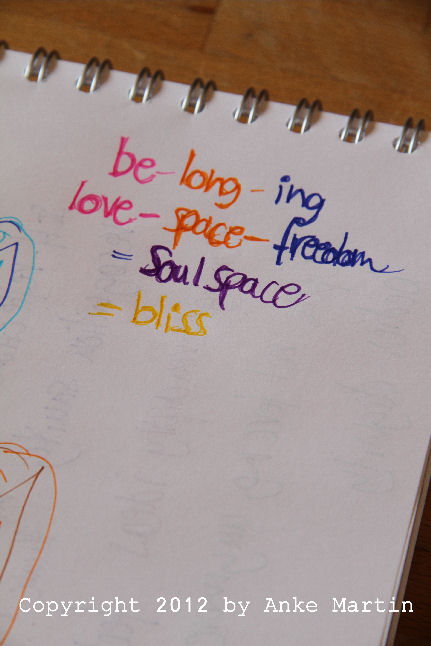 be-long-ing
love-space-freedom
= Soulspace
= bliss
Copyright 2012 by Anke Martin